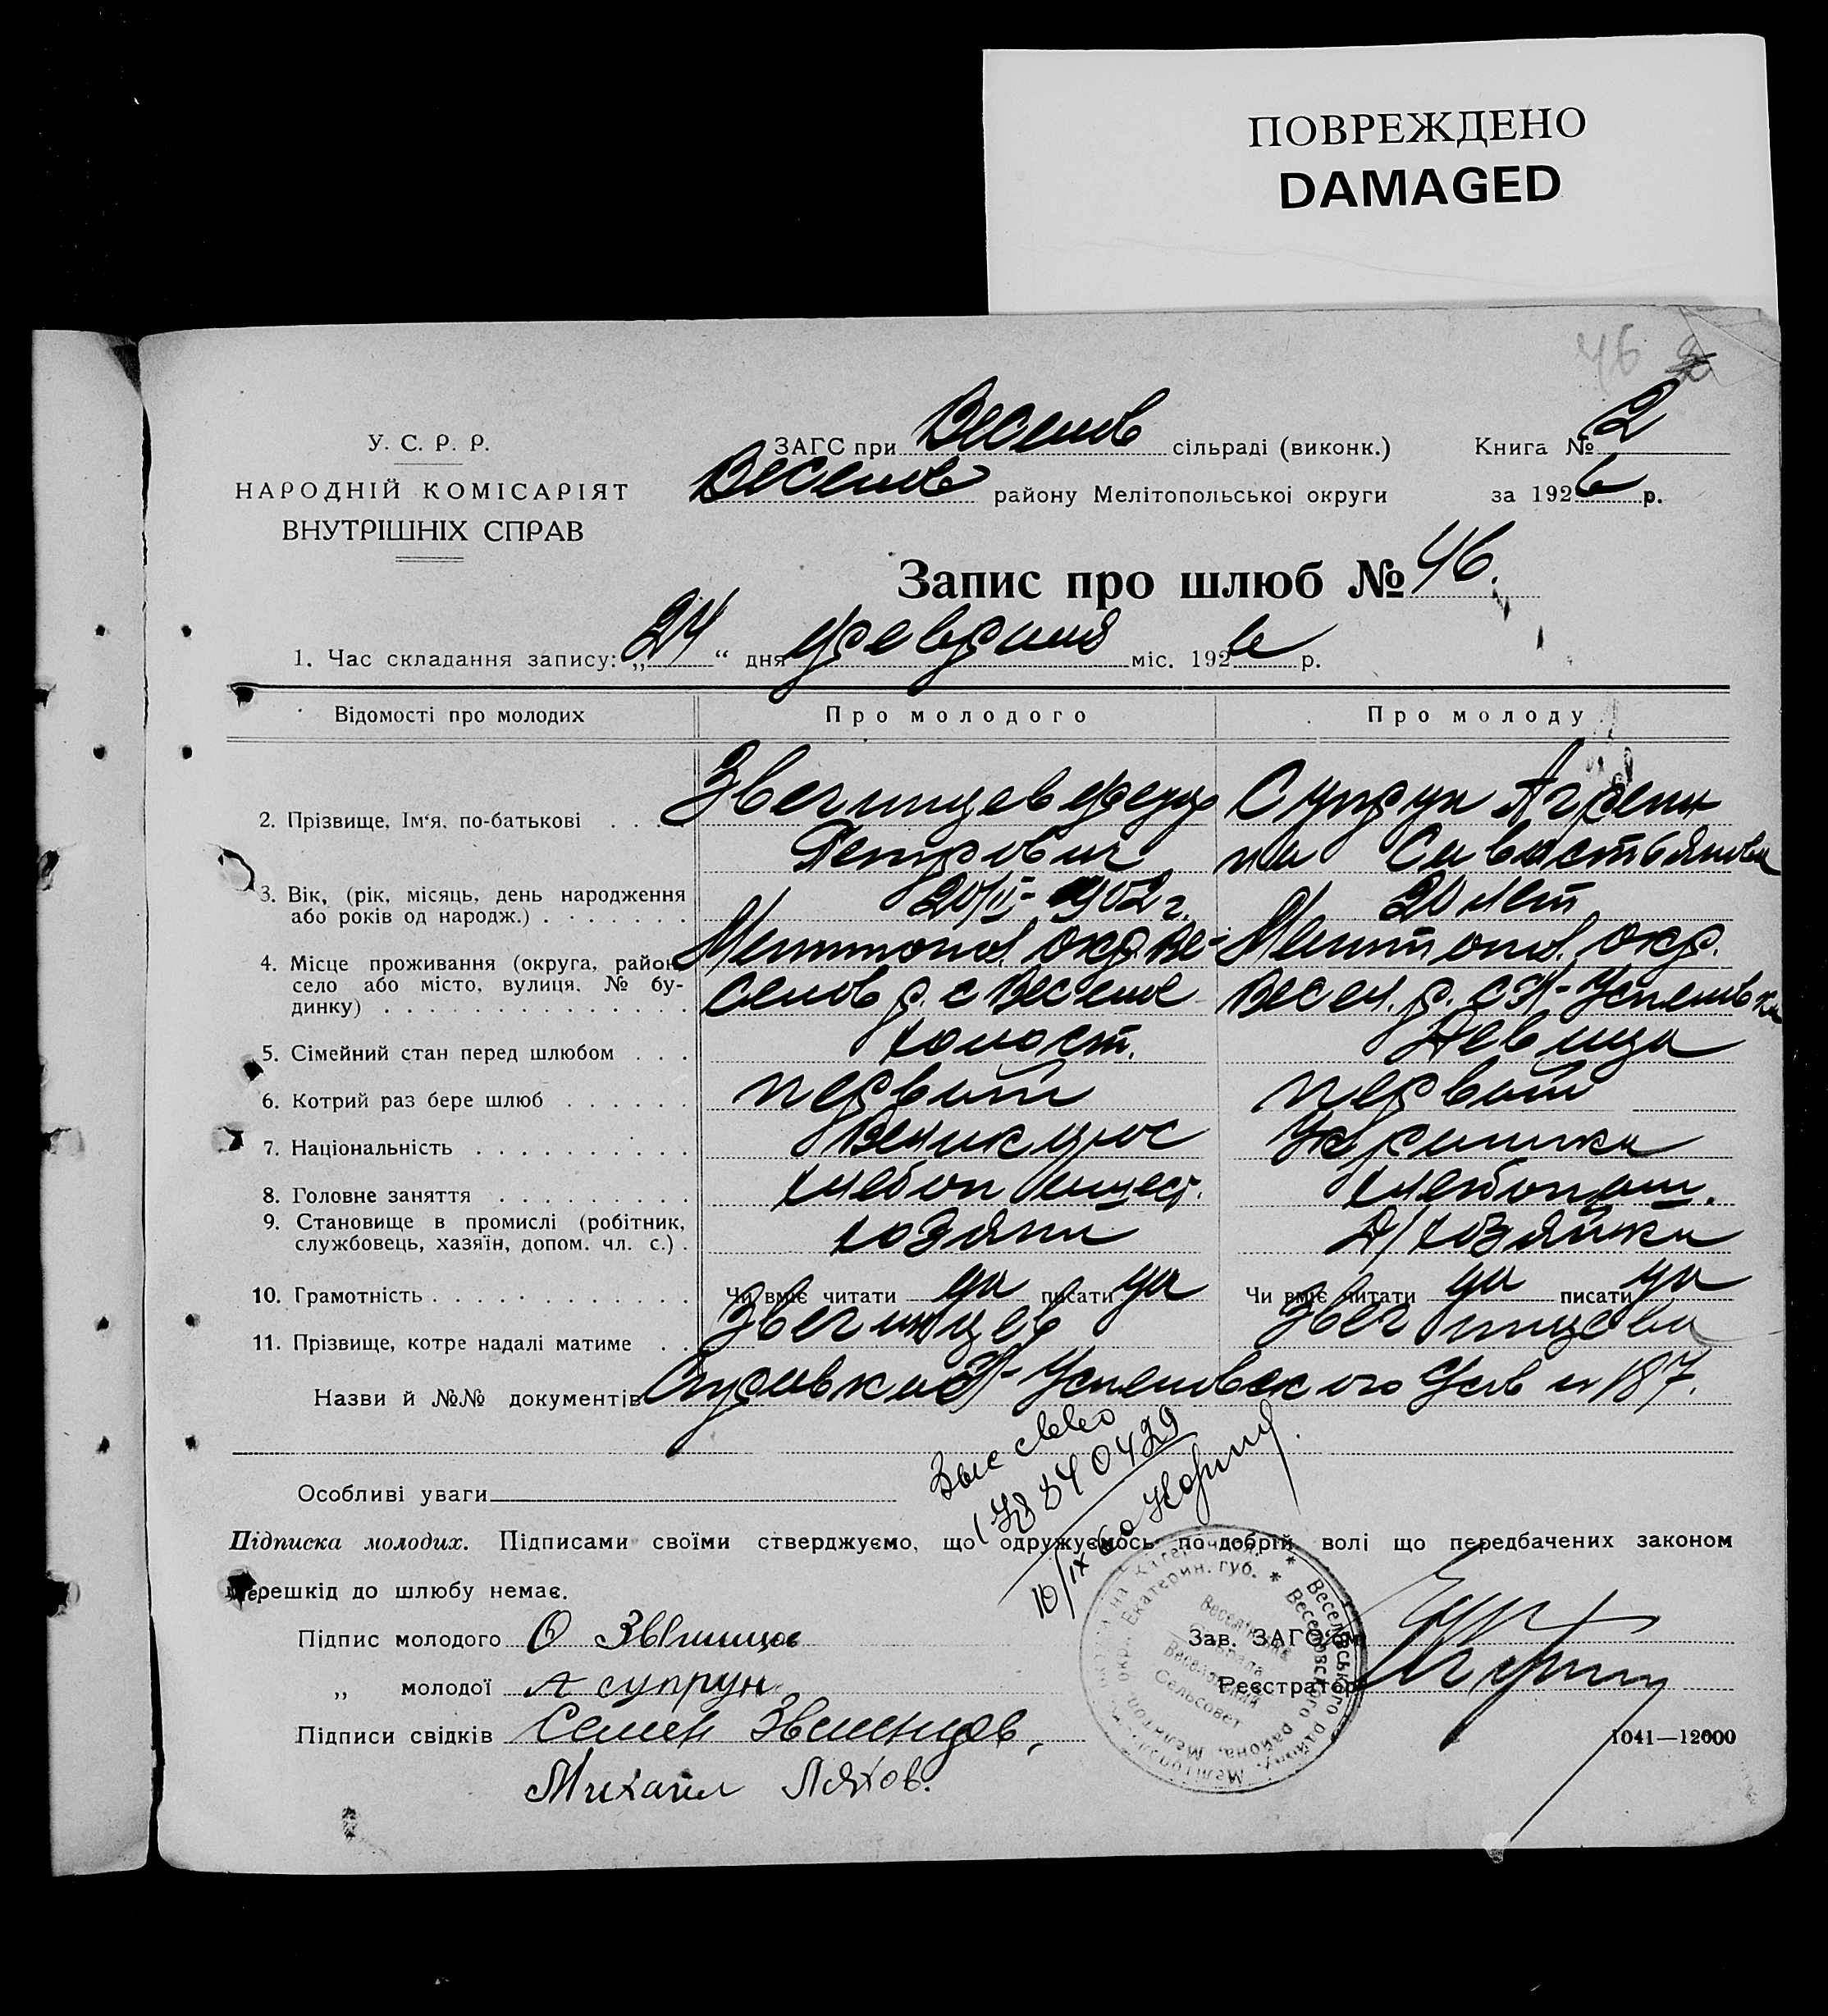 ПОВРЕЖДЕНО
DAMAGED
46
У. С. Р. Р.
НАРОДНІЙ КОМІСАРІЯТ
ВНУТРІШНІХ СПРАВ
ЗАГС при Весело́в сільраді (виконк.) Книга № 2
Веселов району Мелітопольської округи за 1926 р.
Запис про шлюб № 46.
1. Час складання запису: „24“ дня февраля міс. 1926 р.
Відомості про молодих Про молодого Про молоду
2. Прізвище, Ім‘я, по-батькові . . . . Звегинцев Федор Супрун Агрепи
Петрович на Савастьяновн
3. Вік, (рік, місяць, день народження 20/II-1902 г. 20 лет
або років од народж.) . . . . . . .
4. Місце проживання (округа, район, Мелитопол. окр. Ве- Мелитопол. окр.
село або місто, вулиця, № бу- селов р. с Веселое Весел. р. с Н-Успеновка
динку) . . . . . . . . . . . . . .
5. Сімейний стан перед шлюбом . . . холост. Девица
6. Котрий раз бере шлюб . . . . . . первый первый
7. Національність . . . . . . . . . . Великорос Украинка
8. Головне заняття . . . . . . . . . хлебопашест. хлебопаш.
9. Становище в промислі (робітник,
службовець, хазяїн, допом. чл. с.) . хозяин Д/хозяйка
10. Грамотність . . . . . . . . . . . . Чи вміє читати да писати да Чи вміє читати да писати да
11. Прізвище, котре надалі матиме . . Звегинцев Звегинцева
Назви й №№ документів Справка Н-Успеновского 187.
Особливі уваги
Підписка молодих. Підписами своїми стверджуємо, що одружуємось по добрій волі що передбачених законом
перешкід до шлюбу немає.
Підпис молодого Звегинцов
„ молодої А супрун
Зав. ЗАГС‘ом
Реєстратор
Підписи свідків Семен Звегенцов,
Михаил Ляхов.
1041—12000